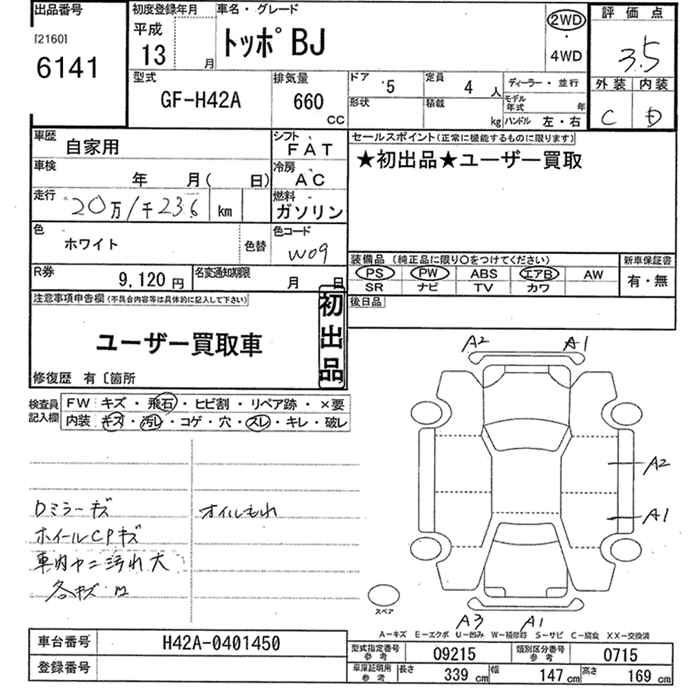 出品番号 初度登録年月 車名・グレード 2WD 評価点
[2160] 平成 トッポBJ ・ 3.5
6141 13 月 4WD
型式 排気量 ドア 5 定員 4 人 ディーラー・並行 外装 内装
GF-H42A 660 CC 形状 積載 kg モデル年式 年 C D
ハンドル 左・右
車歴 自家用 シフト FAT セールスポイント(正常に機能するものに限ります)
車検 年 月( 日) 冷房 AC ★初出品★ユーザー買取
走行 20万/千236 km 燃料 ガソリン
色 ホワイト 色替 色コード W09
装備品 (純正品に限り○をつけてください) 新車保証書
PS PW ABS エアB AW 有・無
SR ナビ TV カワ
R券 9,120円 名変通知期限 月 日
後日品
注意事項申告欄(不具合内容等は具体的に記入して下さい)
初出品
ユーザー買取車
修復歴 有〔箇所
検査員記入欄 FW キズ・飛石・ヒビ割・リペア跡・×要
内装 キズ・汚レ・コゲ・穴・スレ・キレ・破レ
A2 A1
A2
A1
Dミラーキズ オイルもれ
ホイールCPキズ
車内ヤニ汚れ大
各キズ凹
スペア
A3 A1
A-キズ E-エクボ U-凹み W-補修跡 S-サビ C-腐食 XX-交換済
車台番号 H42A-0401450
登録番号
型式指定番号 参考 09215 類別区分番号 参考 0715
車庫証明用 参考 長さ 339 cm 幅 147 cm 高さ 169 cm